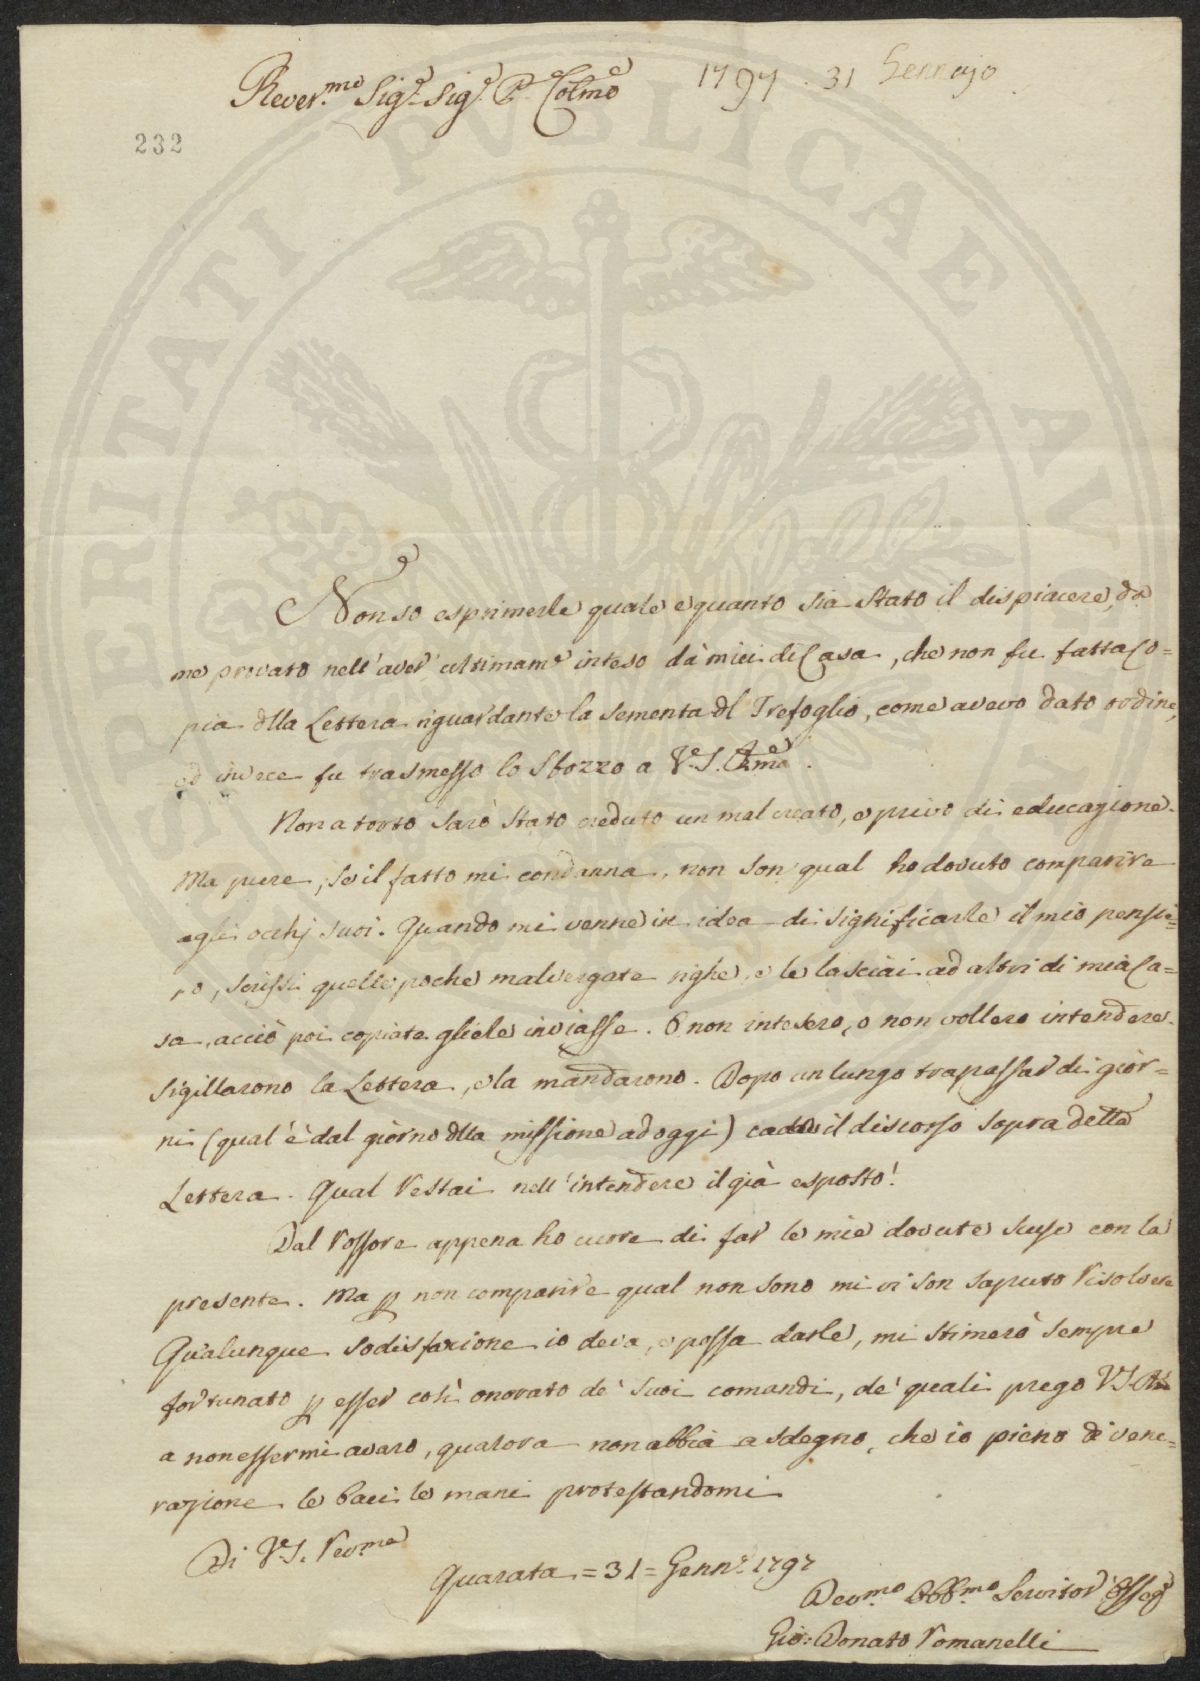 Rever.mo Sig.e Sig.e P.e Colmo
1797. 31 Gennajo
232
Non so esprimerle quale e quanto sia stato il dispiacere, da
me provato nell'aver ultimam.e inteso dà miei di Casa, che non fu fatta co=
pia dlla Lettera riguardante la sementa dl Trefoglio, come avevo dato ordine,
ed invece fu trasmesso lo sbozzo a V.S.
Non a torto sarò stato creduto un mal creato, e privo di educazione.
Ma pure, se il fatto mi condanna, non son qual ho dovuto comparire
agli occhj suoi. Quando mi venne in idea di significarle il mio pensie=
ro, scrissi quelle poche malvergate righe, e le lasciai ad altri di mia Ca=
sa, acciò poi copiate gliele inviasse. O non intesero, o non vollero intendere.
Sigillarono la Lettera, e la mandarono. Dopo un lungo trapassar di gior=
ni (qual'è dal giorno dlla missione ad oggi) cadde il discorso sopra detta
Lettera. Qual restai nell'intendere il già esposto!
Dal rossore appena ho cuore di far le mie dovute scuse con la
presente. Ma p non comparire qual non sono mi vi son saputo risolvere
Qualunque sodisfazione io deva, e possa darle, mi stimerò sempre
fortunato p esser così onorato de' suoi comandi, de' quali prego V.S.
a non essermi avaro, qualora non abbia a sdegno, che io pieno di vene=
razione le baci le mani protestandomi
Di V.S. Revma
Quarata = 31 = Genn.o 1797
Devmo Obbmo Servitor Osseq
Gio: Donato Romanelli
VERITATI PVBLICAE AV